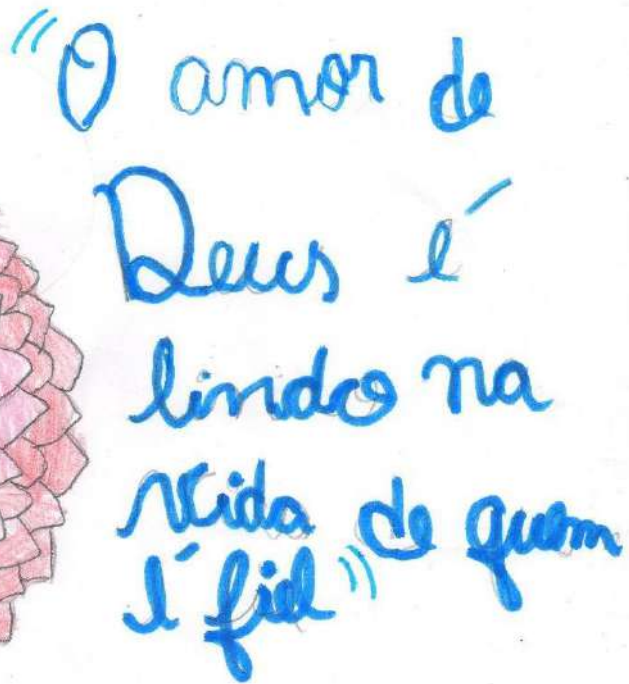 "O amor de
Deus é
lindo na
vida de quem
é fiel"